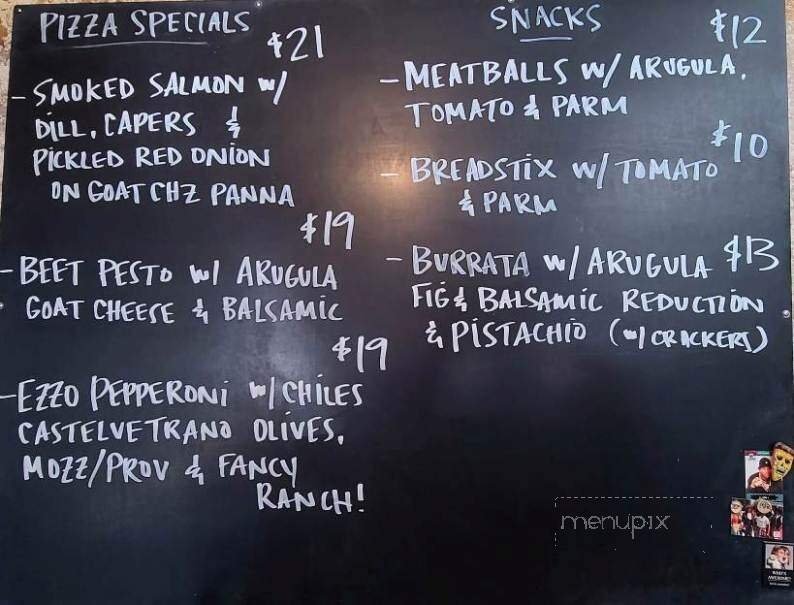 PIZZA SPECIALS
$21
- SMOKED SALMON w/
DILL, CAPERS &
PICKLED RED ONION
ON GOAT CHZ PANNA
$19
- BEET PESTO w/ ARUGULA
GOAT CHEESE & BALSAMIC
$19
- EZZO PEPPERONI w/ CHILES
CASTELVETRANO OLIVES,
MOZZ/PROV & FANCY
RANCH!
SNACKS
$12
- MEATBALLS w/ ARUGULA,
TOMATO & PARM
$10
- BREADSTIX w/ TOMATO
& PARM
- BURRATA w/ ARUGULA $13
FIG & BALSAMIC REDUCTION
& PISTACHIO (w/ CRACKERS)
menupix